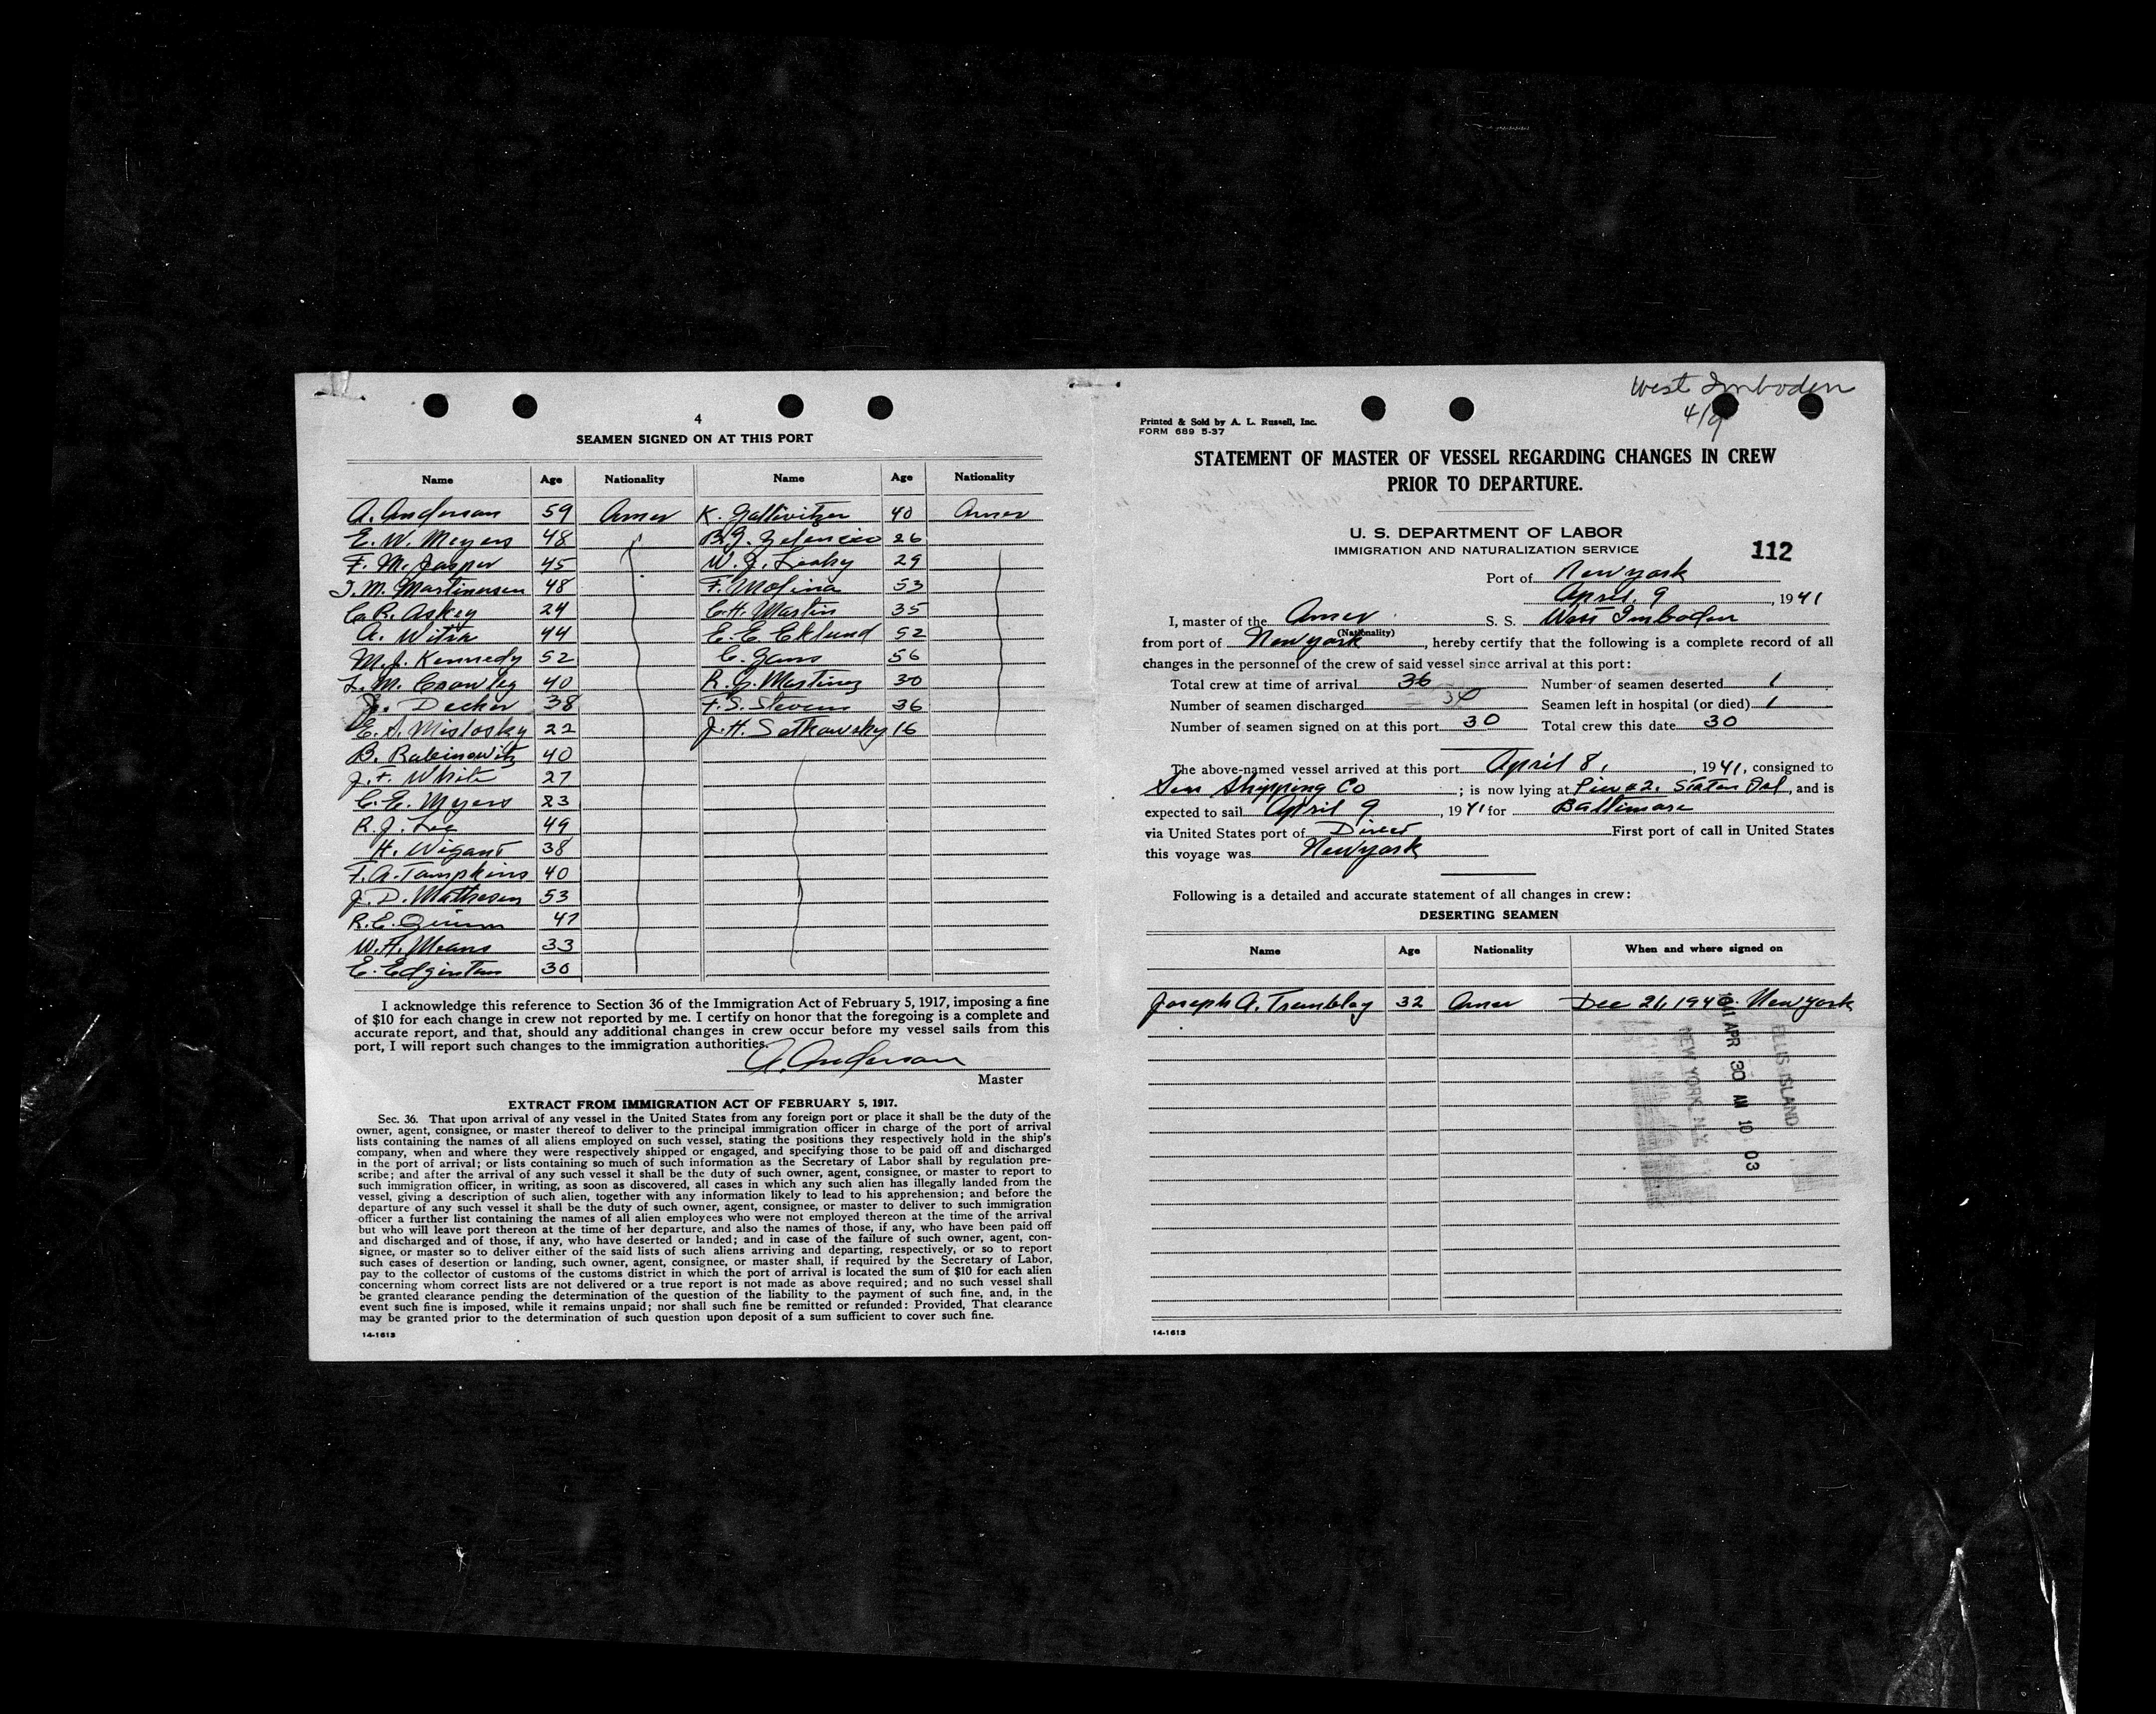 4
SEAMEN SIGNED ON AT THIS PORT
Name Age Nationality Name Age Nationality
A. Anderson 59 Amer K. 40 Amer
E. W. Meyers 48 B. J. 26
F. M. Jasper 45 W. J. Leahy 29
J. M. Martinusen 48 F. Molina 53
C. R. Askey 24 C. H. Martin 35
A. Witra 44 E. E. Eklund 52
M. J. Kennedy 52 C. Gans 56
L. M. Crowley 40 R. G. Martinez 30
J. Decker 38 F. S. Stevens 36
E. A. Mislosky 22 J. H. Sotkowsky 16
B. Rabinowitz 40
J. F. White 27
C. E. Myers 23
R. J. Lee 49
H. Wigant 38
F. A. Tampkins 40
J. D. Matheson 53
R. E. Quinn 47
W. A. Means 33
E. Edginton 30
I acknowledge this reference to Section 36 of the Immigration Act of February 5, 1917, imposing a fine
of $10 for each change in crew not reported by me. I certify on honor that the foregoing is a complete and
accurate report, and that, should any additional changes in crew occur before my vessel sails from this
port, I will report such changes to the immigration authorities.
A. Anderson
Master
EXTRACT FROM IMMIGRATION ACT OF FEBRUARY 5, 1917.
Sec. 36. That upon arrival of any vessel in the United States from any foreign port or place it shall be the duty of the
owner, agent, consignee, or master thereof to deliver to the principal immigration officer in charge of the port of arrival
lists containing the names of all aliens employed on such vessel, stating the positions they respectively hold in the ship's
company, when and where they were respectively shipped or engaged, and specifying those to be paid off and discharged
in the port of arrival; or lists containing so much of such information as the Secretary of Labor shall by regulation pre-
scribe; and after the arrival of any such vessel it shall be the duty of such owner, agent, consignee, or master to report to
such immigration officer, in writing, as soon as discovered, all cases in which any such alien has illegally landed from the
vessel, giving a description of such alien, together with any information likely to lead to his apprehension; and before the
departure of any such vessel it shall be the duty of such owner, agent, consignee, or master to deliver to such immigration
officer a further list containing the names of all alien employees who were not employed thereon at the time of the arrival
but who will leave port thereon at the time of her departure, and also the names of those, if any, who have been paid off
and discharged and of those, if any, who have deserted or landed; and in case of the failure of such owner, agent, con-
signee, or master so to deliver either of the said lists of such aliens arriving and departing, respectively, or so to report
such cases of desertion or landing, such owner, agent, consignee, or master shall, if required by the Secretary of Labor,
pay to the collector of customs of the customs district in which the port of arrival is located the sum of $10 for each alien
concerning whom correct lists are not delivered or a true report is not made as above required; and no such vessel shall
be granted clearance pending the determination of the question of the liability to the payment of such fine, and, in the
event such fine is imposed, while it remains unpaid; nor shall such fine be remitted or refunded: Provided, That clearance
may be granted prior to the determination of such question upon deposit of a sum sufficient to cover such fine.
14-1613
West Imboden
4/9
Printed & Sold by A. L. Russell, Inc.
FORM 689 5-37
STATEMENT OF MASTER OF VESSEL REGARDING CHANGES IN CREW
PRIOR TO DEPARTURE.
U. S. DEPARTMENT OF LABOR
IMMIGRATION AND NATURALIZATION SERVICE
112
Port of New york
April 9, 1941
I, master of the Amer S. S. West Imboden
(Nationality)
from port of New york, hereby certify that the following is a complete record of all
changes in the personnel of the crew of said vessel since arrival at this port:
Total crew at time of arrival 36 Number of seamen deserted 1
Number of seamen discharged 34 Seamen left in hospital (or died) 1
Number of seamen signed on at this port 30 Total crew this date 30
The above-named vessel arrived at this port April 8, 1941, consigned to
Seas Shipping Co; is now lying at Pier 22 Staten Isl, and is
expected to sail April 9, 1941 for Baltimore
via United States port of Direct First port of call in United States
this voyage was New york
Following is a detailed and accurate statement of all changes in crew:
DESERTING SEAMEN
Name Age Nationality When and where signed on
Joseph A. Tremblay 32 Amer Dec 21, 1940. New york
1941 APR 30 AM 10 03
ELLIS ISLAND
NEW YORK, N.Y.
14-1613